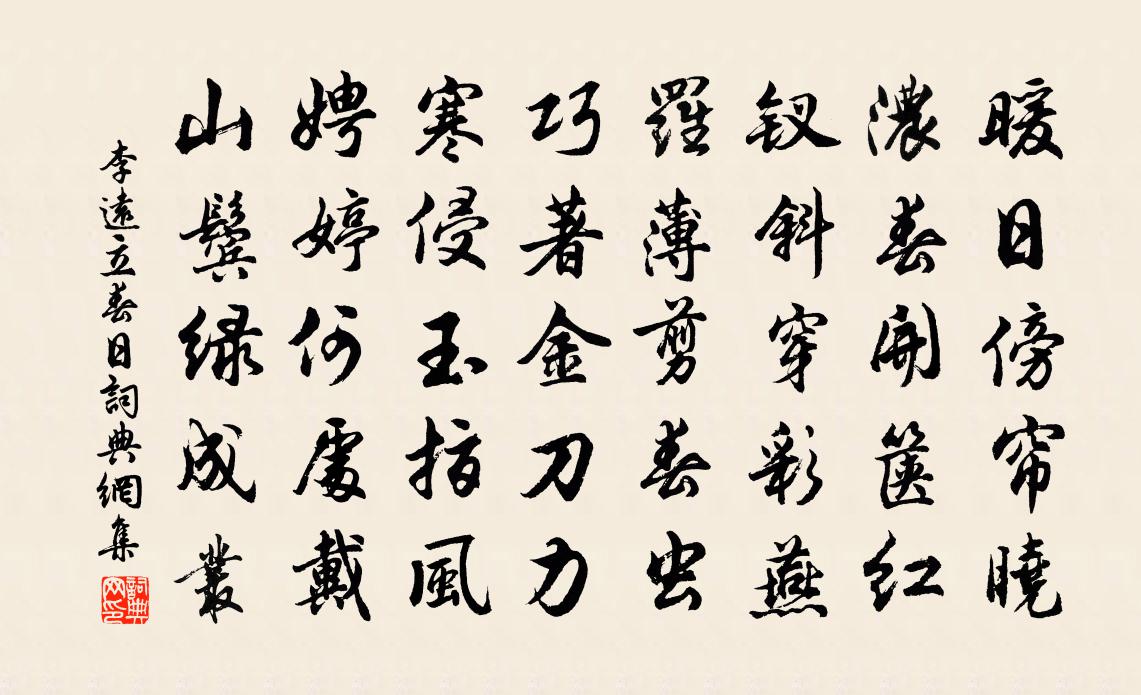 暖日傍帘曉
濃春開篋紅
釵斜穿彩燕
羅薄剪春虫
巧著金刀力
寒侵玉指風
娉婷何處戴
山鬢緑成叢
李遠立春日詞典網集
詞典網印